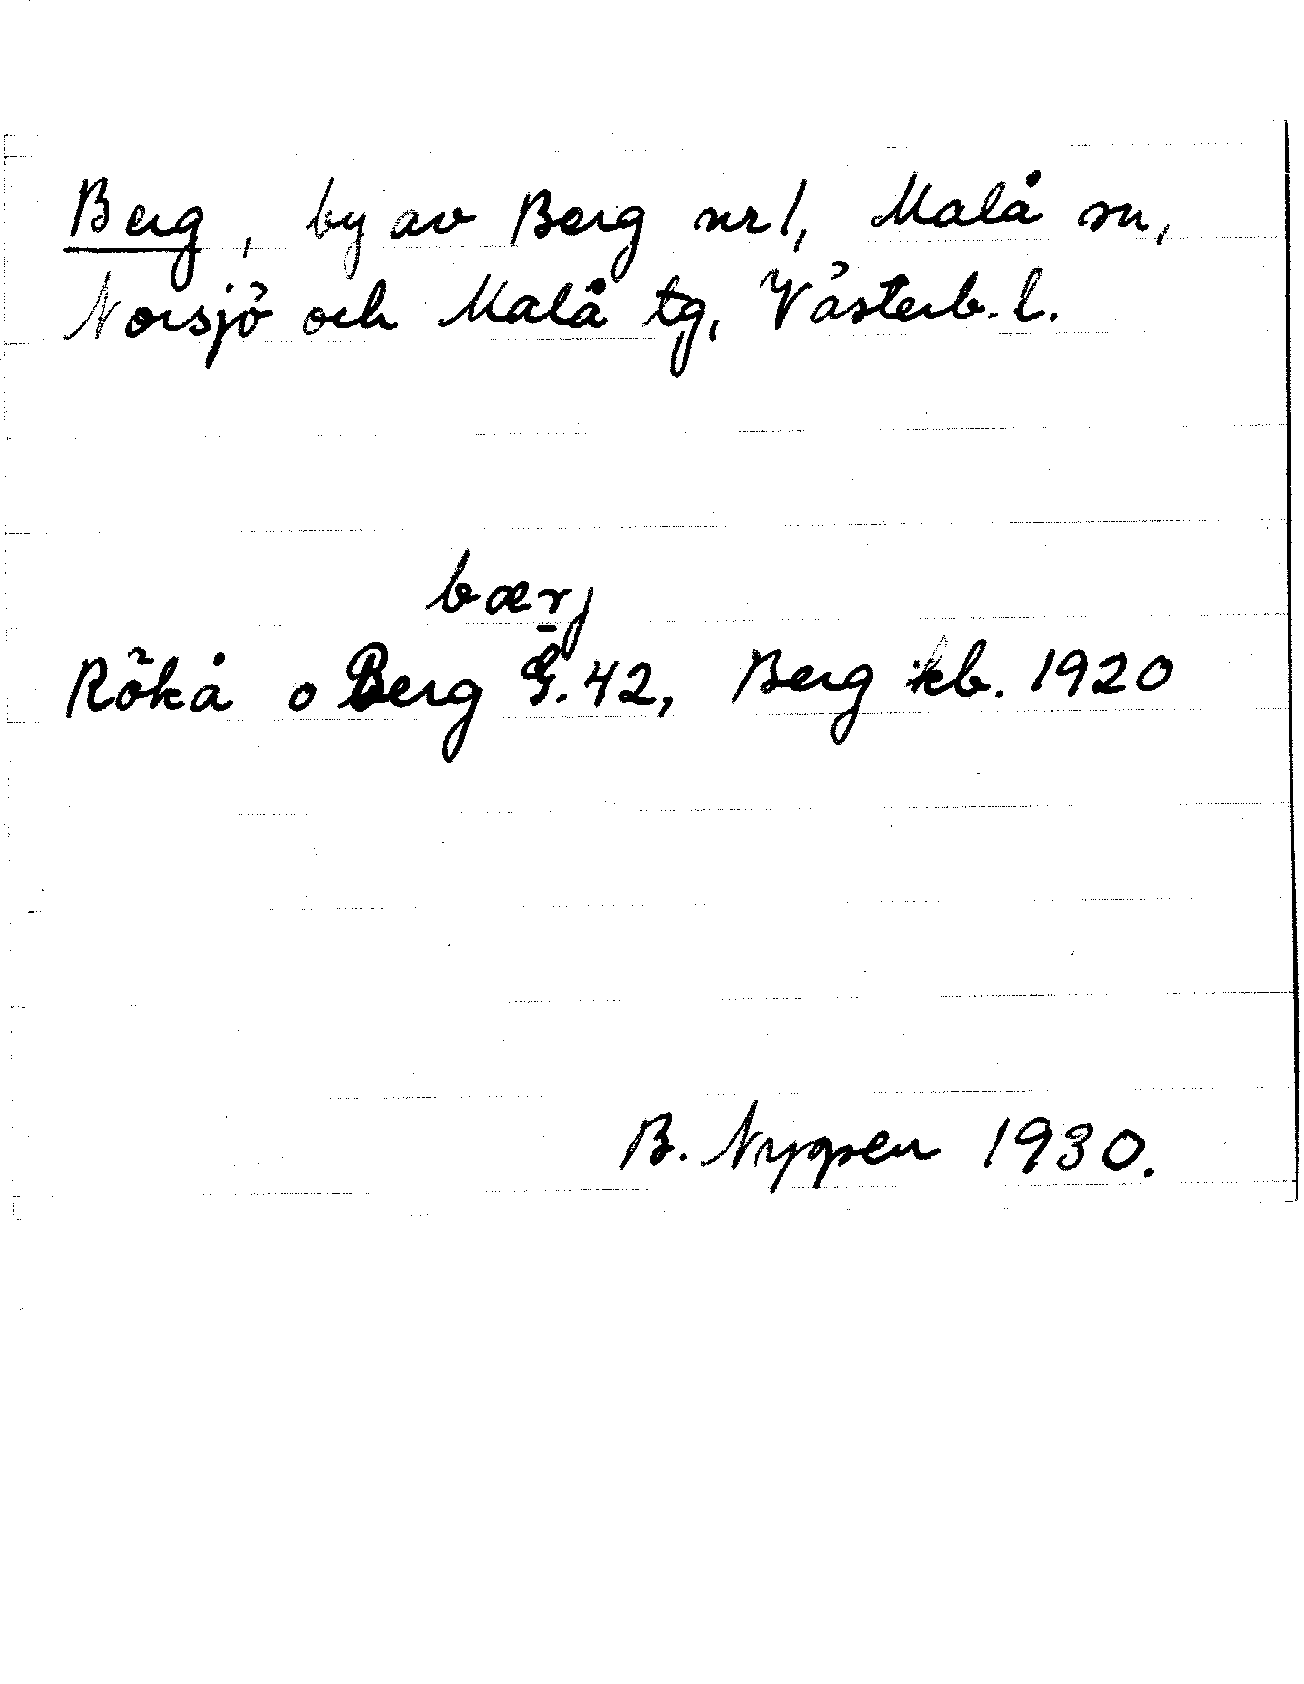 Berg, by av Berg nr 1, Malå sn,
Norsjö och Malå tg, Västerb. l.
bærj
Rökå o Berg G. 42, Berg kb. 1920
B. Nygren 1930.